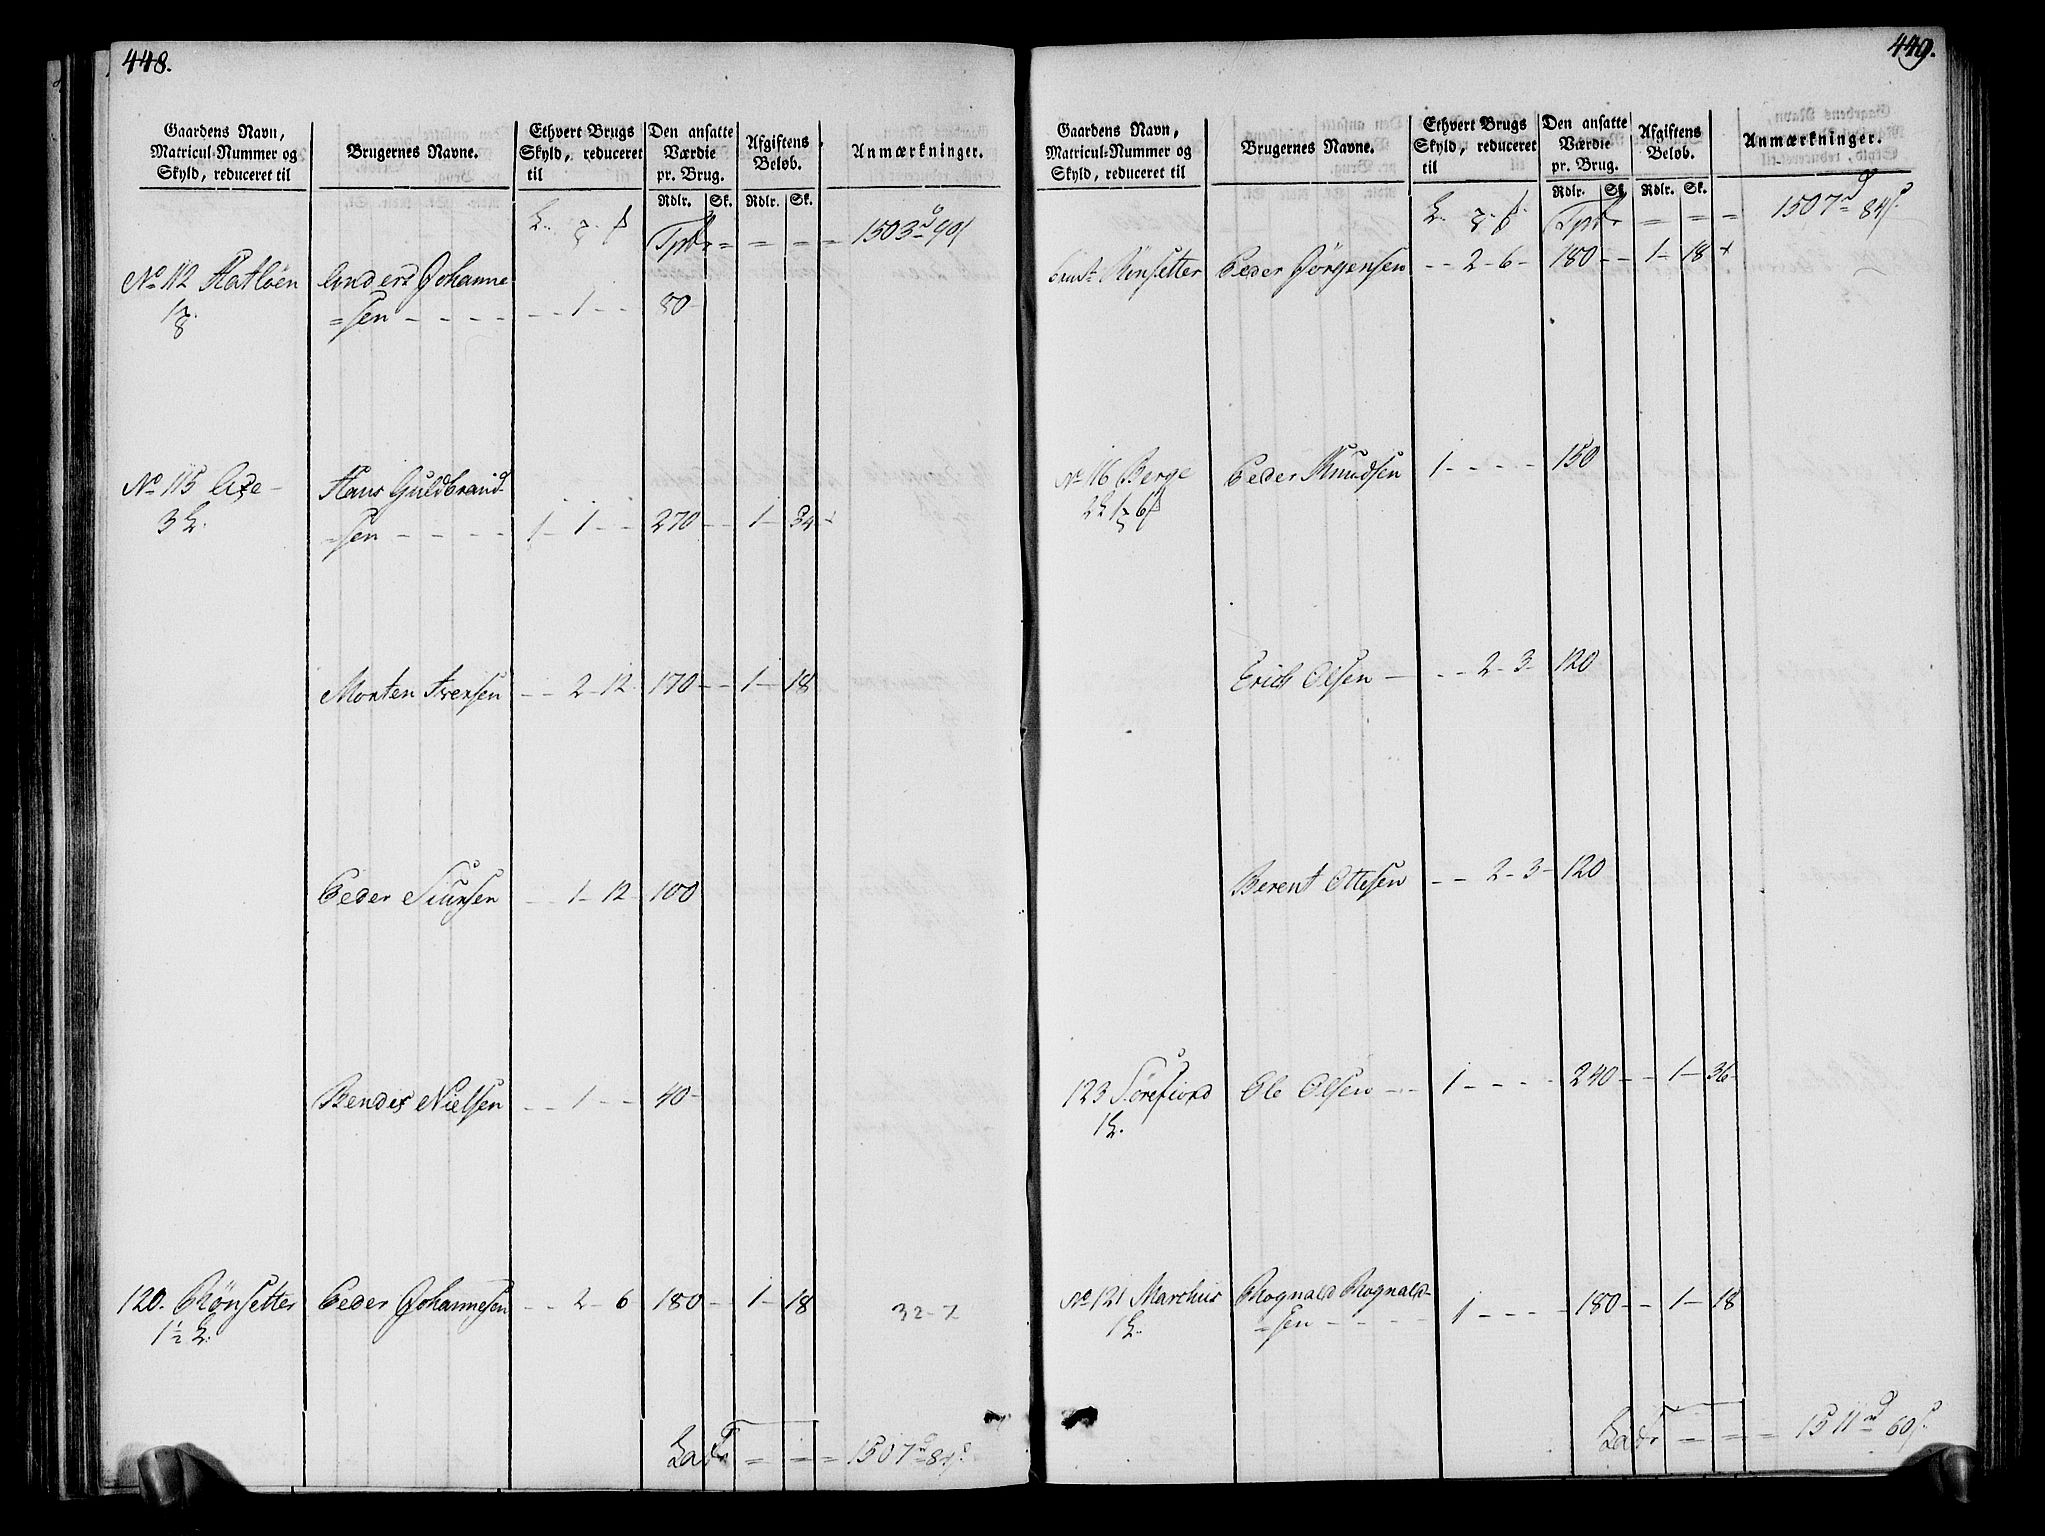 448.
Gaardens Navn, Matricul-Nummer og Skyld, reduceret til
Brugernes Navne.
Ethvert Brugs Skyld, reduceret til
Den ansatte Værdie pr. Brug.
Afgiftens Beløb.
Anmærkninger.
Rdlr. Sk. Rdlr. Sk.
Tpt = = = = 1503 90
No 112 Hatløen Anders Johanne
=sen - - - - - - 1 - - 80 -
No 115 Are - Hans Guldbrand-
3 =sen - - - - 1 - 1 - - 270 - - 1 - 34
Morten Iversen - - 2 - 12 170 - - 1 - 18
Peder Siursen - - 1 - 12 100
Bendes Nielsen - - 1 - - 40 -
120. Rönsetter Peder Johannesen - - 2 - 6 180 - - 1 - 18
1 1/2
32 - 7
Lad = = = 1507 84
449.
Gaardens Navn, Matricul-Nummer og Skyld, reduceret til
Brugernes Navne.
Ethvert Brugs Skyld, reduceret til
Den ansatte Værdie pr. Brug.
Afgiftens Beløb.
Anmærkninger.
Rdlr. Sk. Rdlr. Sk.
Tpt = = = 1507 84
Rönsetter Peder Jörgensen - - 2 - 6 - 180 - - 1 - 18
No 116 Berge Peder Knudsen 1 - - - - 150
Erich Olsen - - - 2 - 3 - 120
Berent Ottesen - - 2 - 3 - 120
123 Sörefiord Ole Olsen - - 1 - - - - 240 - - 1 - 36 -
1
No 121 Marchus Rognald Rognald-
1 =sen - - - - 1 - - - - 180 - - 1 - 18
Lad = = = 1511 60